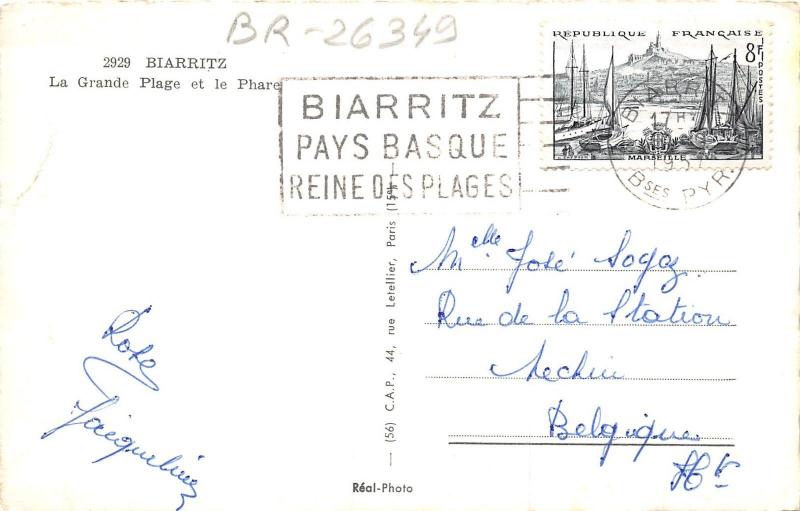 BR-26349
2929 BIARRITZ
La Grande Plage et le Phare
BIARRITZ
PAYS BASQUE
REINE DES PLAGES
REPUBLIQUE FRANÇAISE
8F
POSTES
MARSEILLE
BIARRITZ
1957
Bses PYR.
Melle José Sogaz
Rue de la Station
Néchin
Belgique
Ht
Rose
Jacqueline
(56) C.A.P., 44, rue Letellier, Paris (15e)
Réal-Photo